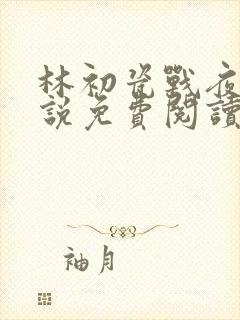 林初瓷戰夜
說免費閱讀
袖月